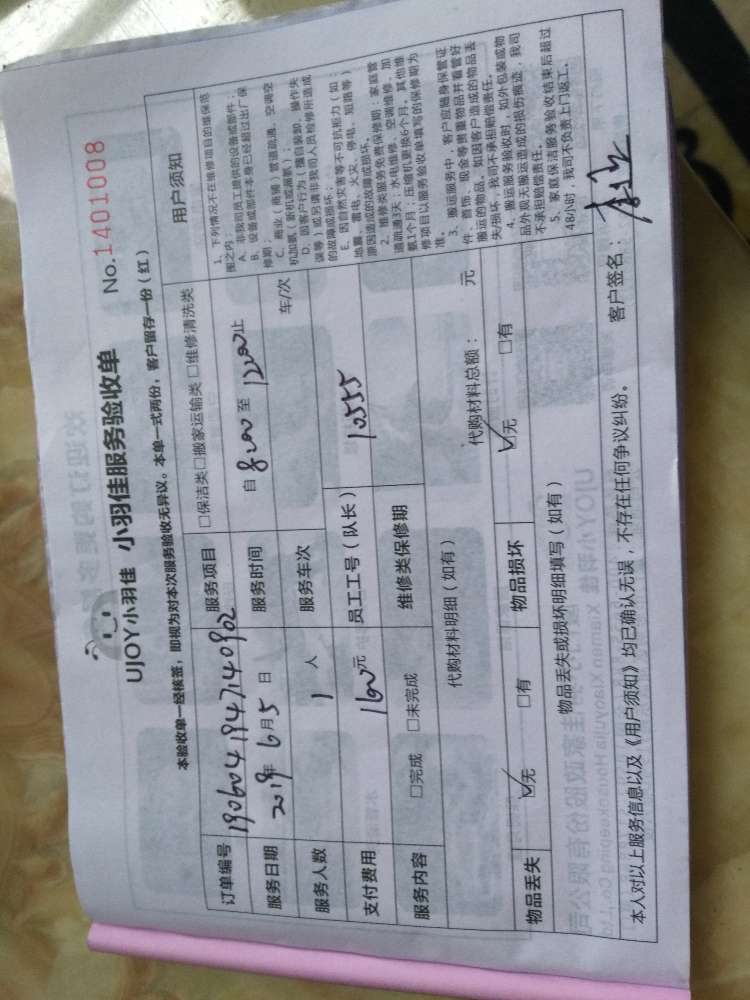 UJOY小羽佳 小羽佳服务验收单 No.1401008
本验收单一经核签，即视为对本次服务验收无异议。本单一式两份，客户留存一份（红）
订单编号 190604194714090２ 服务项目 □保洁类□搬家运输类 □维修清洗类 用户须知
服务日期 2019年 6月5日 服务时间 自 8:00 至 12:00止
服务人数 1 人 服务车次 车/次
支付费用 160元 员工工号（队长） 10555
服务内容 □完成 □未完成 维修类保修期
代购材料明细（如有） 代购材料总额： 元
物品丢失 ☑无 □有 物品损坏 ☑无 □有
物品丢失或损坏明细填写（如有）
1、下列情况不在维修项目的维保范
围之内：
A、非我司员工提供的设备或部件；
B、设备或部件本身已经超过出厂保
修期；
C、商业（商铺）管道疏通，空调空
机加氨（新机或漏氨）；
D、因客户行为（擅自装卸、操作失
误等）或另请非我司人员检修所造成
的故障或损坏；
E、因自然灾害等不可抗拒力（如：
地震、雷电、火灾、停电、短路等）
原因造成的故障或损坏。
2、维修类服务免费保修期：家庭管
道疏通3天；水电维修、空调维修、加
氨1个月；压缩机更换6个月。其他维
修项目以服务验收单填写的保修期为
准。
3、搬运服务中，客户应随身保管证
件、首饰、现金等贵重物品并看管好
搬运的物品。如因客户造成的物品丢
失/损坏，我司不承担赔偿责任。
4、搬运服务验收时，如外包装或物
品外观无搬运造成的损伤痕迹，我司
不承担赔偿责任。
5、家庭保洁服务验收结束后超过
48小时，我司不负责上门返工。
本人对以上服务信息以及《用户须知》均已确认无误，不存在任何争议纠纷。 客户签名：